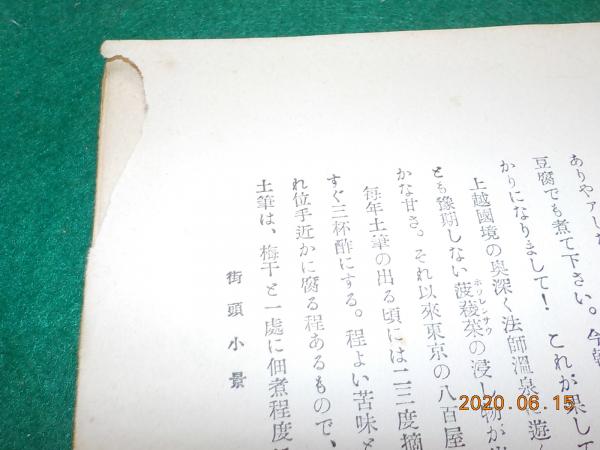 ありやアした
豆腐でも煮て下さい。今朝
かりになりまして! これが果して
上越國境の奥深く法師溫泉に遊
とも豫期しない菠薐菜の浸し物が
ホウレンサウ
かな甘さ。それ以來東京の八百屋
毎年土筆の出る頃には二三度摘
すぐ三杯酢にする。程よい苦味と
れ位手近かに腐る程あるもので、
土筆は、梅干と一處に佃煮程度に
街頭小景
2020.06.15